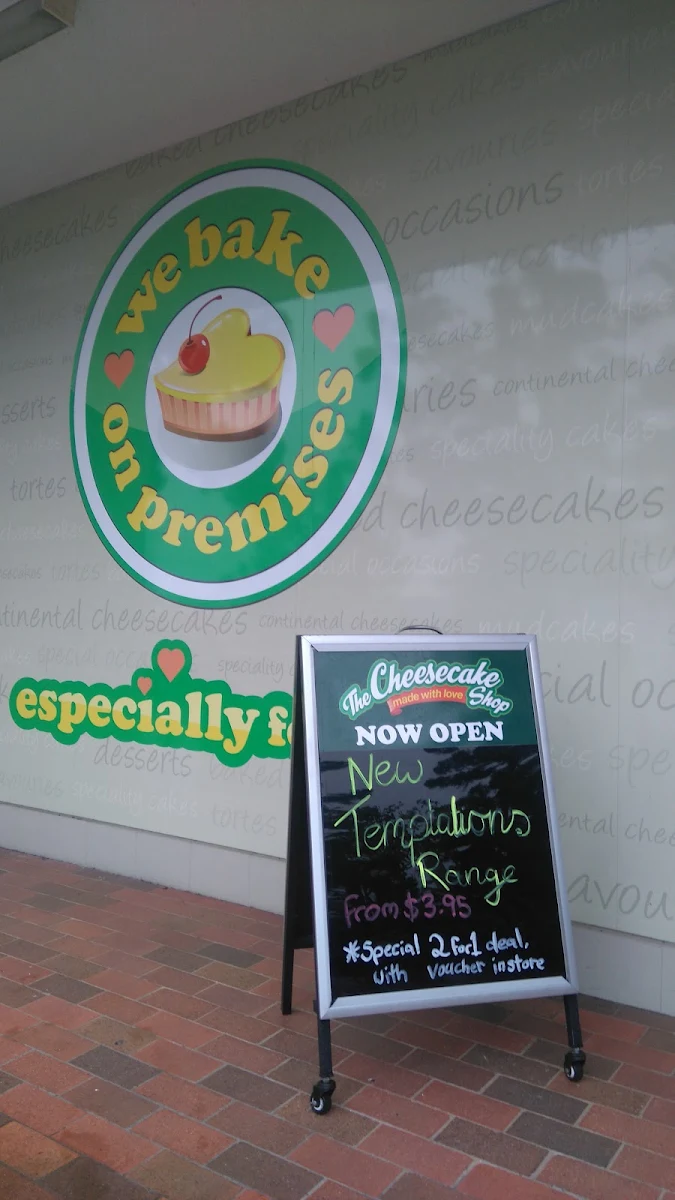 baked cheesecakes
speciality cakes
savouries
special
cheesecakes
occasions
tortes
we bake
on premises
mudcakes
continental chee
speciality cakes
tortes
cheesecakes
special occasions
speciality
tinental cheesecakes
continental cheesecakes
mudcakes
especially fo
desserts
baked
tortes
The Cheesecake Shop
made with love
NOW OPEN
New
Temptations
Range
From $3.95
*Special 2 for 1 deal,
with voucher instore